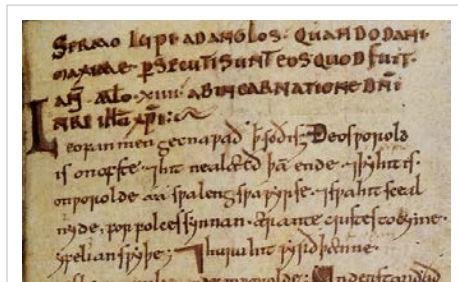 SERMO LUPI AD ANGLOS· QUANDO DANI
MAXIME ꝑSECUTI SUNT EOS QUOD FUIT·
AN̄· XIIII· AB INCARNATIONE DN̄I
NR̄I IH̄U XP̄I
Leofan men gecnaƿað ꝥ soð is· Ðeos ƿorold
is on ofste· ⁊ hit nealæcð þā ende· ⁊ þy hit is
on ƿorolde aa sƿa leng sƿa ƿyrse· ⁊ sƿa hit sceal
nyde· for folces synnan· ær antecristes tocyme·
yfelian sƿyþe· ⁊ huru hit ƿyrð þænne·
ƿorolde· Understandað